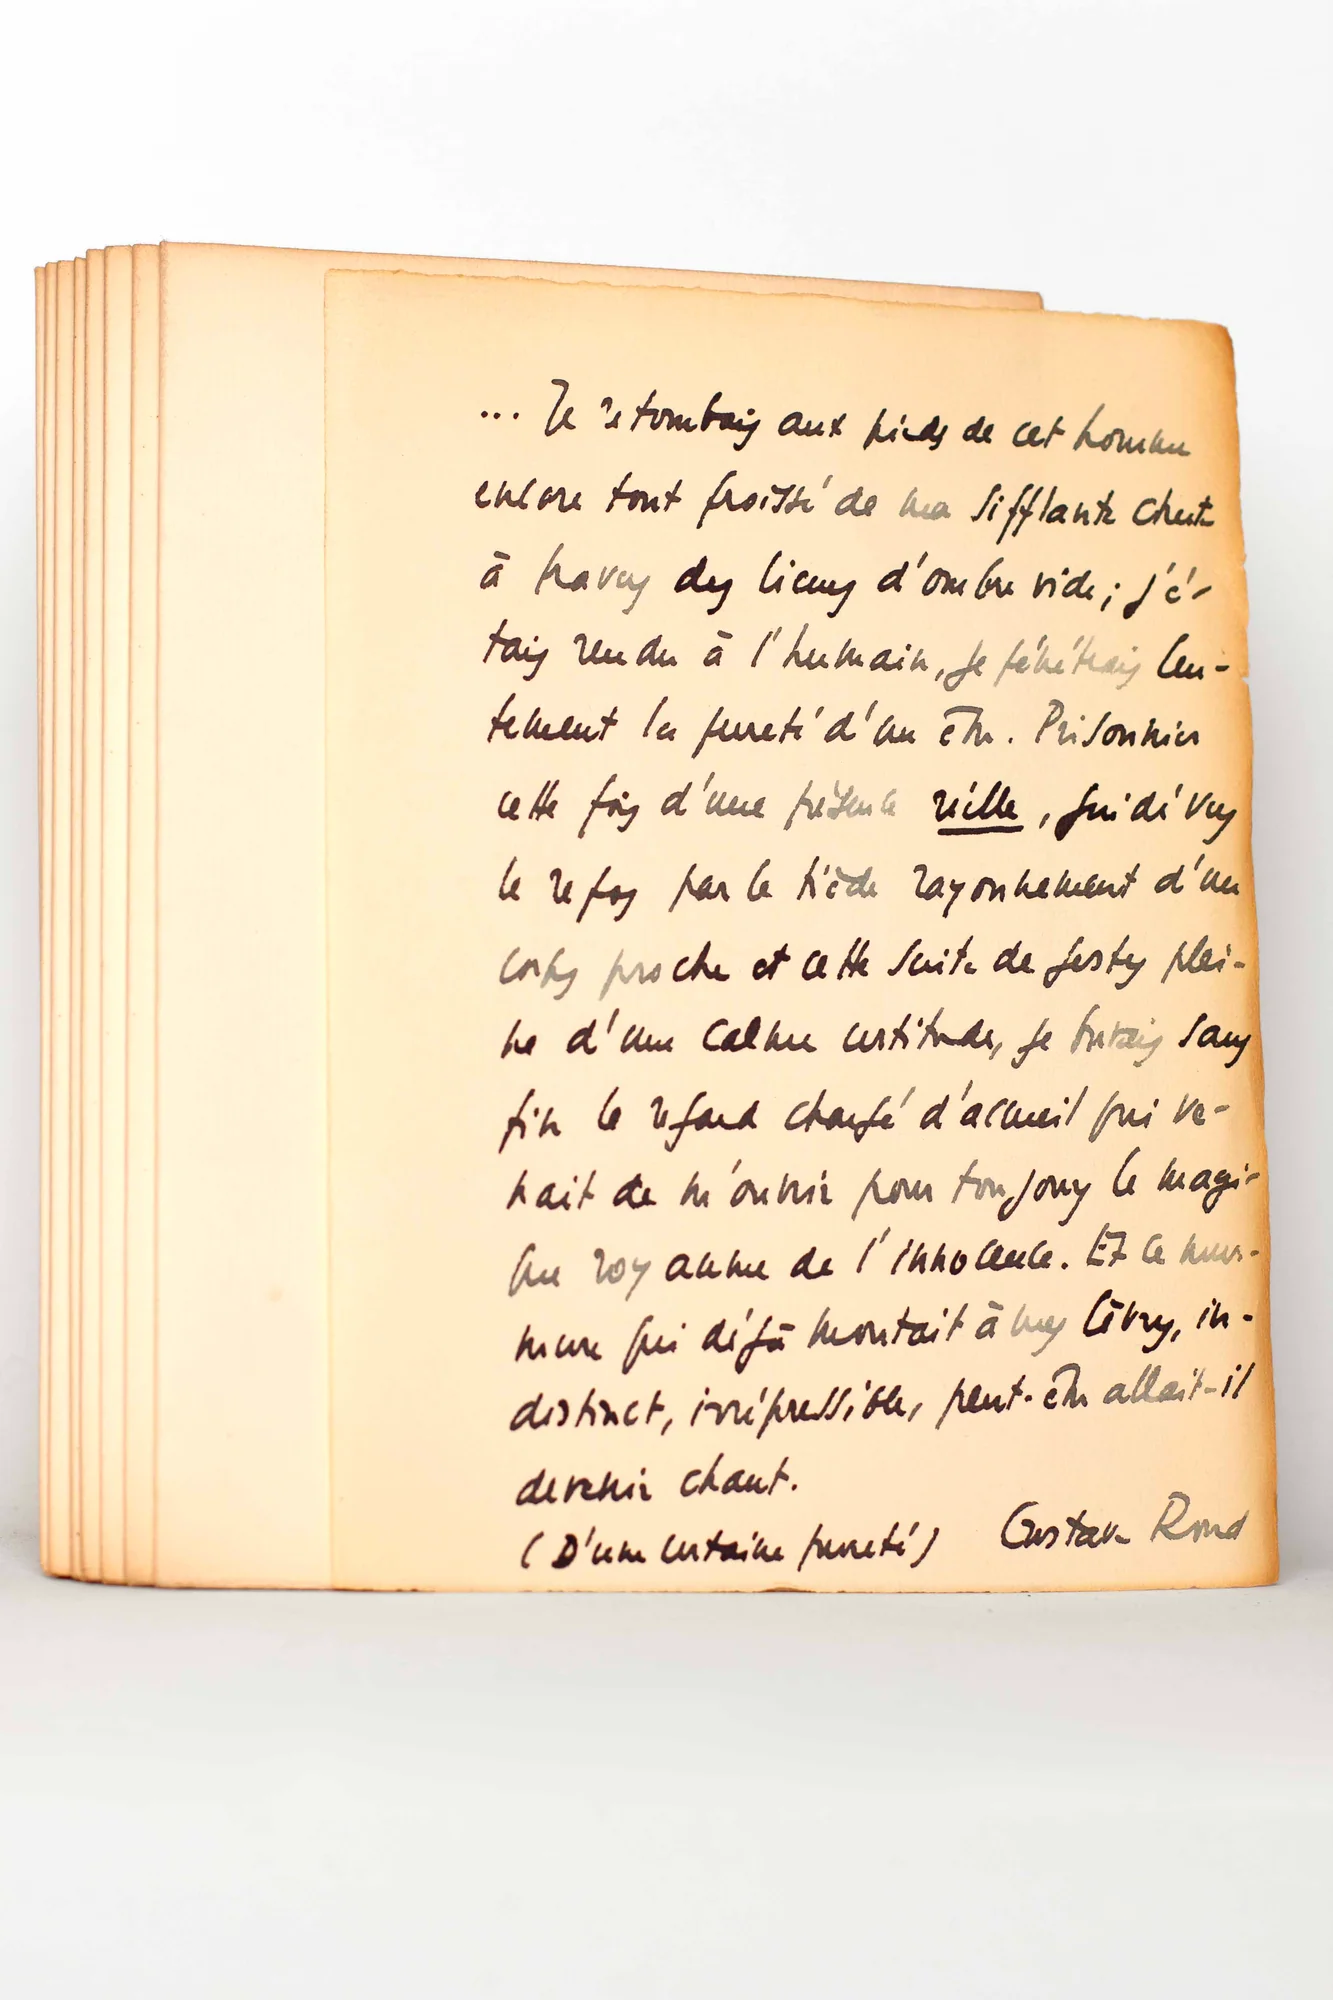 ... Je retombais aux pieds de cet homme
encore tout froissé de ma sifflante chute
à travers des lieues d'ombre vide ; j'é-
tais rendu à l'humain, je pénétrais len-
tement la pureté d'un être. Prisonnier
cette fois d'une présence réelle, guidé vers
le repos par le tiède rayonnement d'un
corps proche et cette suite de gestes plei-
ne d'une calme certitude, je buvais sans
fin le regard chargé d'accueil qui ve-
nait de m'ouvrir pour toujours le magi-
que royaume de l'innocence. Et ce mur-
mure qui déjà montait à mes lèvres, in-
distinct, irrépressible, peut-être allait-il
devenir chant.
(D'une certaine pureté) Gustave Roud